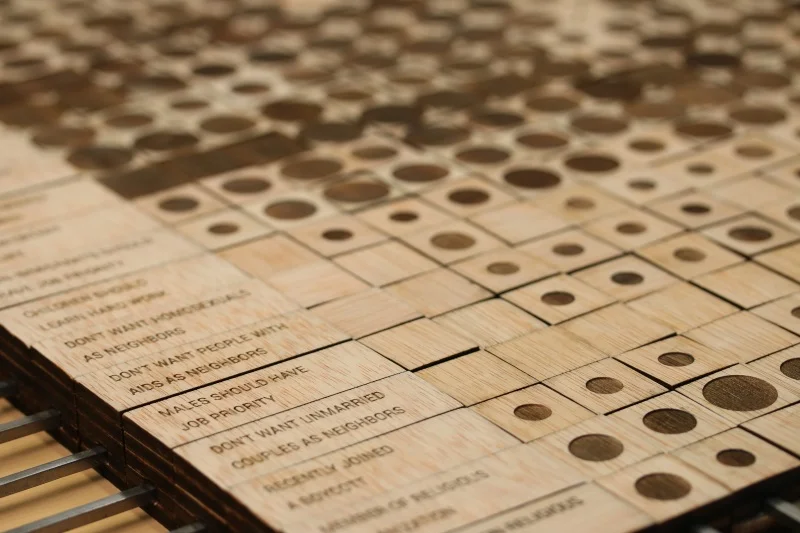 JOB PRIORITY
CHILDREN SHOULD
LEARN HARD WORK
DON'T WANT HOMOSEXUALS
AS NEIGHBORS
DON'T WANT PEOPLE WITH
AIDS AS NEIGHBORS
MALES SHOULD HAVE
JOB PRIORITY
DON'T WANT UNMARRIED
COUPLES AS NEIGHBORS
RECENTLY JOINED
A BOYCOTT
MEMBER OF RELIGIOUS
RELIGIOUS